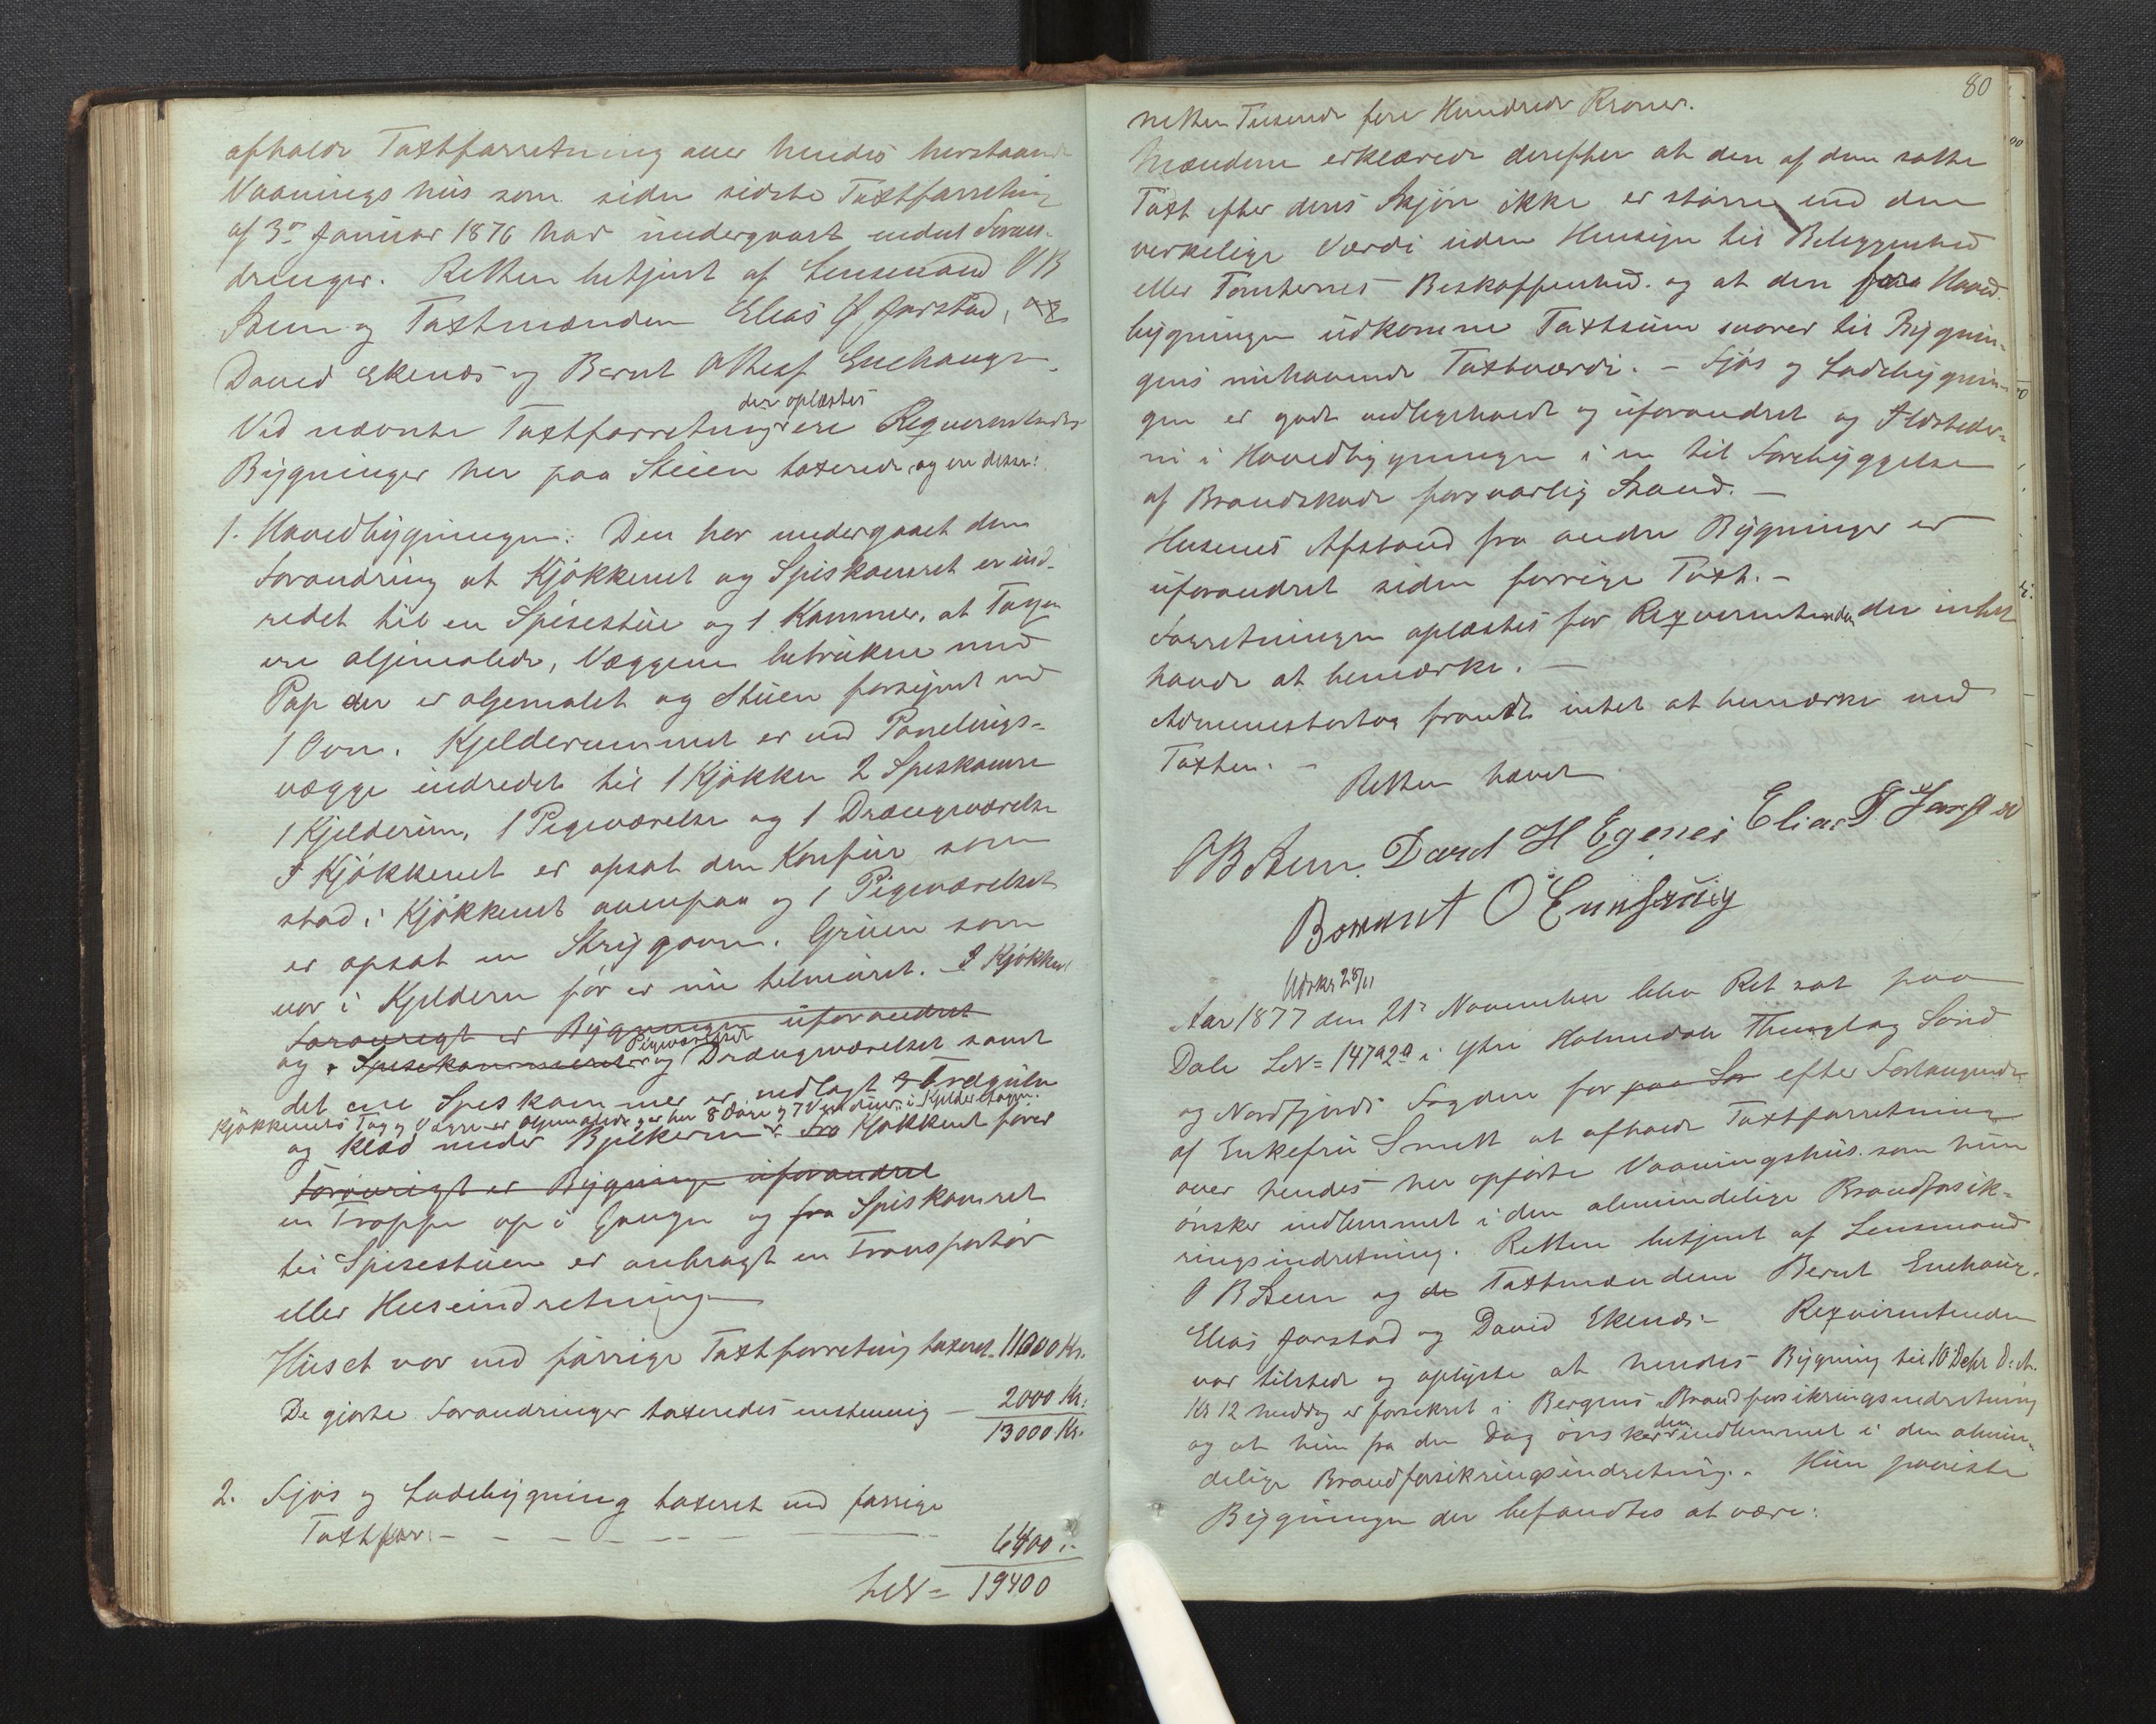 afholde Taxtforretning over hendes herstaaende
Vaaningshus som siden sidste Taxtforretning
af 3die Januar 1876 har undergaaet endel Foran-
dringer. Retten betjent af Lensmand O B
Steen og Taxtmændene Elias J Jarstad,
David Ekenæs og Bernt Enehaug
der oplæstes
Ved nævnte Taxtforretning ere Reqvirentindes
Bygninger her paa Steien taxerede, og ere disse:
1. Hovedbygningen: Den har undergaaet den
Forandring at Kjøkkenet og Spiskamret er ind-
redet til en Spisestue og 1 Kammer, at Tagen
ere oljemalede, Væggene betrukne med
Pap der er oljemalet og Stuen forsynet med
1 Ovn. Kjelderrummet er ved Panelings-
vægge indredet til 1 Kjøkken 2 Speskamre
1 Kjelderum, 1 Pigeværelse og 1 Drengeværelse
I Kjøkkenet er opsat den Komfur som
stod i Kjøkkenet ovenpaa og 1 Pigeværelset
er opsat en Strygeovn. Gruen som
var i Kjelderen før er nu tilmuret. I Kjøkkenet
Forøvrigt er Bygningen uforandret
Pigeværelset
og Spisekammeret og Drengeværelset samt
det ene Speskammer er nedlagt Tregulv
Kjøkkenets Tag og Vægge er oljemalede, er her 8 Døre og 7 Vinduer i Kjelderetagen.
og klæd under Bjelkerne. Fra Kjøkkenet fører
Forøvrigt er Bygningen uforandret
en Trappe op i Gangen og fra Spiskamret
til Spisestuen er anbragt en Transportør
eller Heiseindretning
Huset var ved forrige Taxtforretning taxeret 11000 Kr.
De gjorte Forandringer taxeredes enstemmig — 2000 Kr.
13000 Kr.
2. Fjøs og Ladebygning taxeret ved forrige
Taxtfor: - - - - - - - 6400 -
19400
80
nitten Tusende fire Hundrede Kroner.
Mændene erklærede derefter at den af dem satte
Taxt efter deres Skjøn ikke er større end den
verkelige Værdi uden Hensyn til Beliggenhed
eller Tomternes Beskaffenhed. og at den for Hoved-
bygningen udkomne Taxtsum svarer til Bygnin-
gens nuhavende Taxtværdi. – Fjøs og Ladebygnin-
gen er godt vedligeholdt og uforandret og Ildsteder-
ne i Hovedbygningen i en til Forebyggelse
af Brandskade forsvarlig Stand. –
Husenes Afstand fra andre Bygninger er
uforandret siden forrige Taxt. –
Forretningen oplæstes for Reqvirentinden der intet
havde at bemærke. –
Administrator fandt intet at bemærke ved
Taxten. –
Retten hævet
O B Steen. David H Egenes Elias J Jarstad
Bernt O Enehaug
Udskr 28/11
Aar 1877 den 21de November blev Ret sat paa
Dale LNr 147a2a i Ytre Holmedals Thinglag Sønd
og Nordfjords Fogderi for paa So efter Forlangende
af Enkefru Smitt at afholde Taxtforretning
over hendes her opførte Vaaningshus som hun
ønsker indlemmet i den almindelige Brandforsik-
ringsindretning. Retten betjent af Lensmand
O B Steen og de Taxtmændene Bernt Enehaug.
Elias Jarstad og David Ekenæs. – Reqvirentinden
var tilstede og oplyste at hendes Bygning til 10 Debr d. A.
Kl 12 Middag er forsikret i Bergens Brandforsikringsindretning
den
og at hun fra den Dag ønsker indlemmet i den almin-
delige Brandforsikringsindretning. Hun paaviste
Bygningen der befandtes at være: